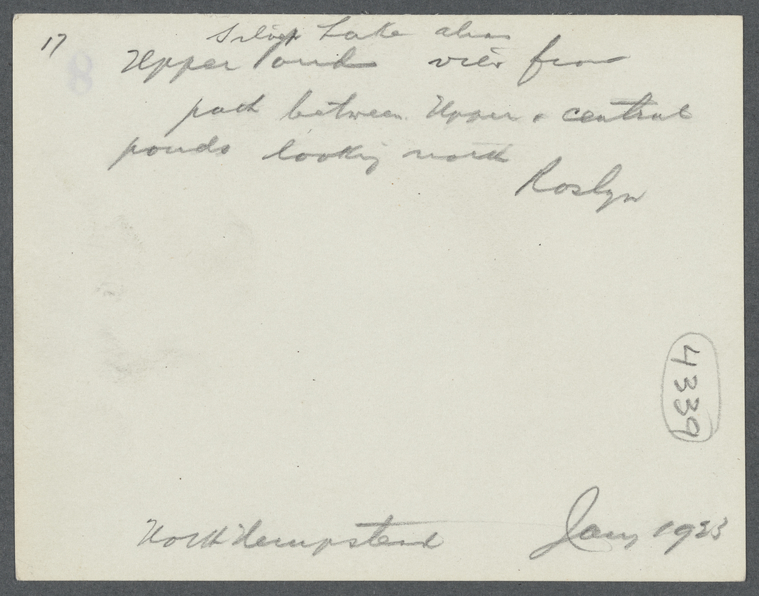 17
Silver Lake alias
Upper Pond view from
path between Upper & central
ponds looking north
Roslyn
4339
8
North Hempstead
Jany 1923